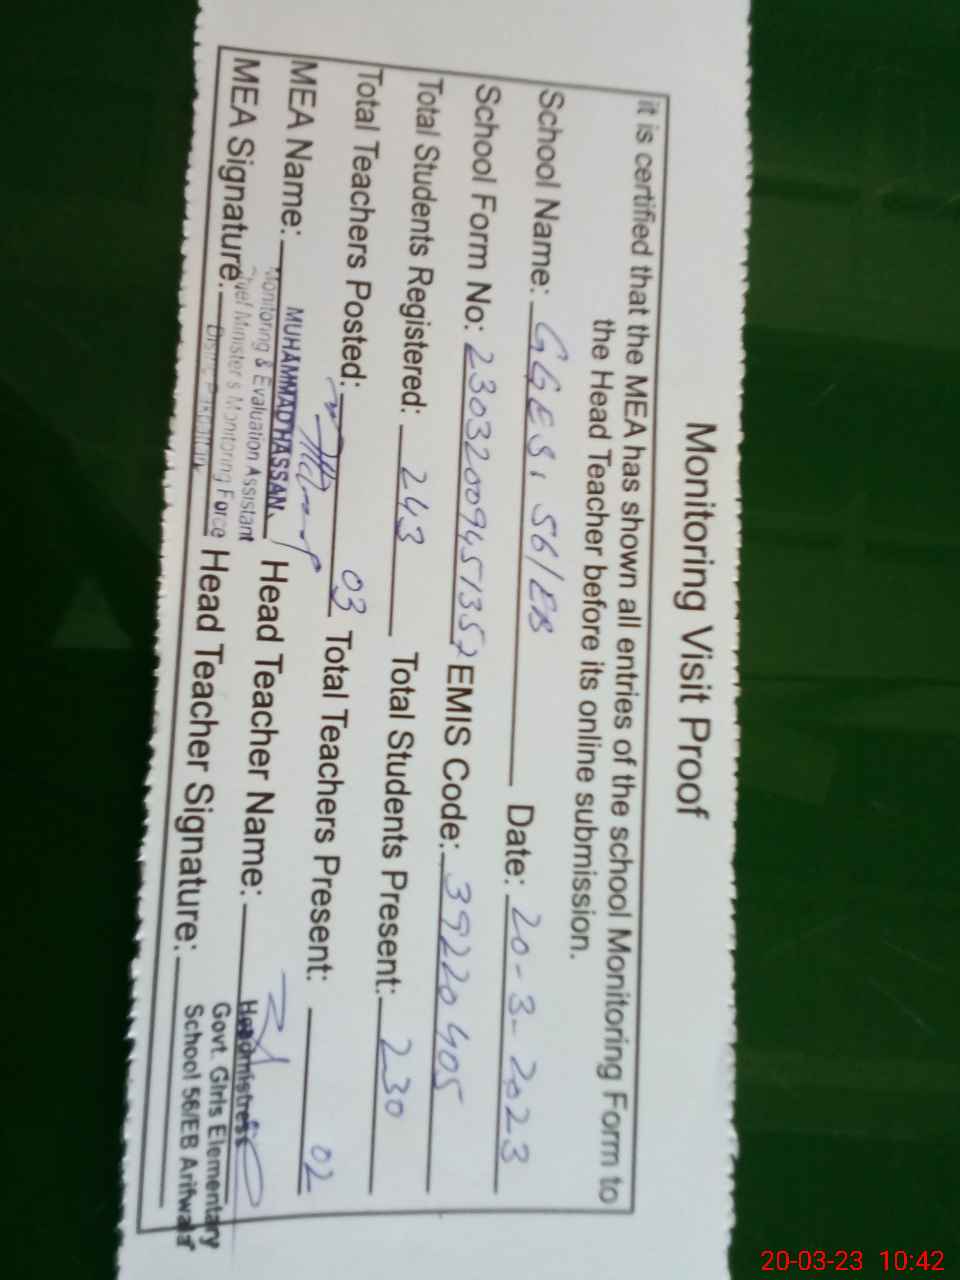 Monitoring Visit Proof
it is certified that the MEA has shown all entries of the school Monitoring Form to
the Head Teacher before its online submission.
School Name: GGES, 56/EB Date: 20-3-2023
School Form No: 23032009451352 EMIS Code: 39220405
Total Students Registered: 243 Total Students Present: 230
Total Teachers Posted: 03 Total Teachers Present: 02
MEA Name: MUHAMMAD HASSAN Head Teacher Name:
Monitoring & Evaluation Assistant
Headmistress
MEA Signature: Head Teacher Signature:
Chief Minister's Monitoring Force
District Pakpattan
Govt. Girls Elementary
School 56/EB Arifwala
20-03-23 10:42